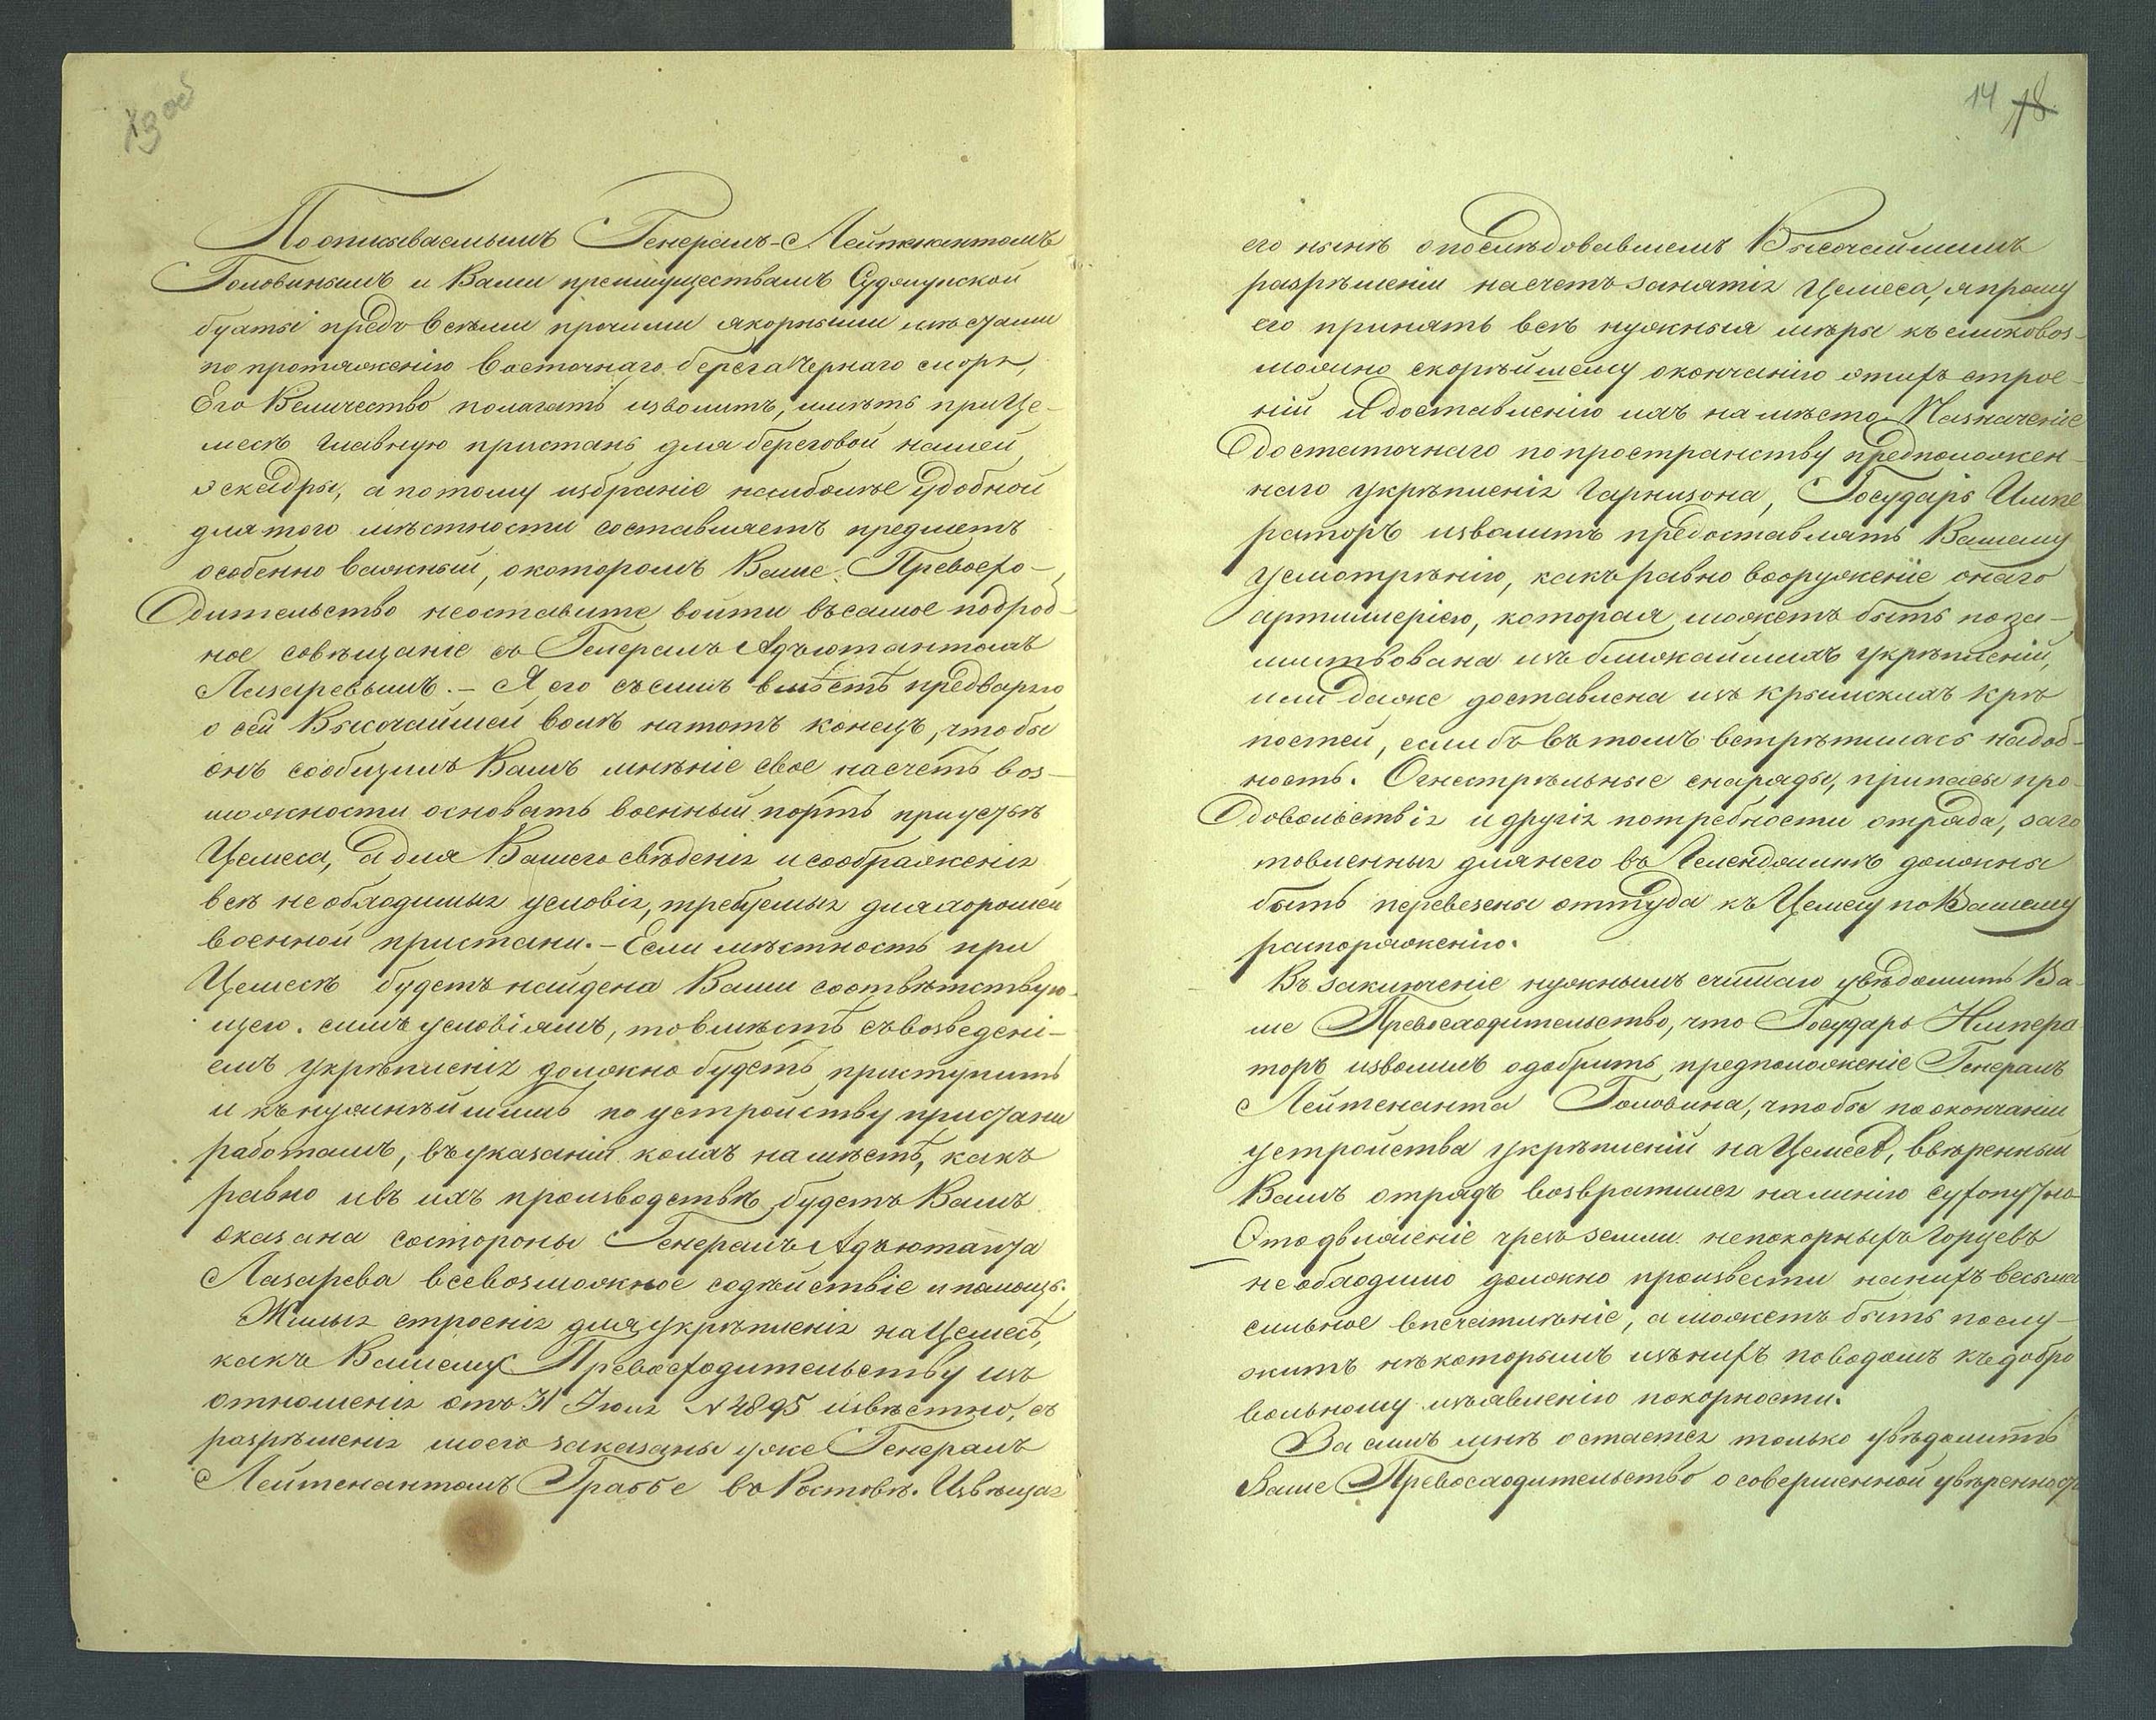 13 об
По описываемымъ Генералъ-Лейтенантомъ
Головинымъ и Вами преимуществамъ Суджукской
бухты предъ всѣми прочими якорными мѣстами
по протяженію восточнаго берега Чернаго моря,
Его Величество полагать изволитъ, имѣть при Це-
месѣ главную пристань для береговой нашей
эскадры, а потому избраніе наиболѣе удобной
для того мѣстности составляетъ предметъ
особенно важный, о которомъ Ваше Превосхо-
дительство неоставите войти въ самое подроб-
ное совѣщаніе съ Генералъ Адъютантомъ
Лазаревымъ. – Я его съ симъ вмѣстѣ предваряю
о сей Высочайшей волѣ на тотъ конецъ, чтобы
онъ сообщилъ Вамъ мнѣніе свое насчетъ воз-
можности основать военный портъ при устьѣ
Цемеса, а для Вашего свѣденія и соображенія
всѣ необходимыя условія, требуемыя для хорошей
военной пристани. – Если мѣстность при
Цемесѣ будетъ найдена Вами соотвѣтствую-
щею симъ условіямъ, то вмѣстѣ съ возведені-
емъ укрѣпленія должно будетъ приступить
и къ нужнѣйшимъ по устройству пристани
работамъ, въ указаніи коихъ на мѣстѣ, какъ
равно и въ ихъ производствѣ будетъ Вамъ
оказана состороны Генералъ Адъютанта
Лазарева всевозможное содѣйствіе и помощь.
Жилыя строенія для укрѣпленія на Цемесѣ,
какъ Вашему Превосходительству изъ
отношенія отъ 31 Іюля № 4895 извѣстно, съ
разрѣшенія моего заказаны уже Генералъ
Лейтенантомъ Граббе въ Ростовѣ. Извѣщая
14 18
его нынѣ о послѣдовавшемъ Высочайшимъ
разрѣшеніи насчетъ занятія Цемеса, я прошу
его принять всѣ нужныя мѣры къ сколь воз-
можно скорѣйшему окончанію этихъ строе-
ній и доставленію ихъ на мѣсто. Назначеніе
достаточнаго по пространству предположен-
наго укрѣпленія гарнизона, Государь Импе
раторъ изволитъ предоставлять Вашему
усмотрѣнію, какъ равно вооруженіе онаго
артиллеріею, которая можетъ быть поза-
имствована изъ ближайшихъ укрѣпленій,
или даже доставлена изъ Крымскихъ крѣ
постей, если бъ въ томъ встрѣтилась надоб-
ность. Огнестрѣльные снаряды, припасы про-
довольствія и другія потребности отряда, заго
товленныя для него въ Геленджикѣ должны
быть перевезены оттуда къ Цемесу по Вашему
распоряженію.
Въ заключеніе нужнымъ считаю увѣдомить Ва-
ше Превосходительство, что Государь Импера
торъ изволилъ одобрить предположеніе Генералъ
Лейтенанта Головина, чтобы по окончаніи
устройства укрѣпленій на Цемесѣ, ввѣренный
Вамъ отрядъ возвратился на линію сухопутно
Это движеніе чрезъ земли непокорныхъ Горцевъ
необходимо должно произвести на нихъ весьма
сильное впечатлѣніе, а можетъ быть послу-
житъ нѣкоторымъ изъ нихъ поводомъ къ добро
вольному изъявленію покорности.
За симъ мнѣ остается только увѣдомить
Ваше Превосходительство о совершенной увѣренности